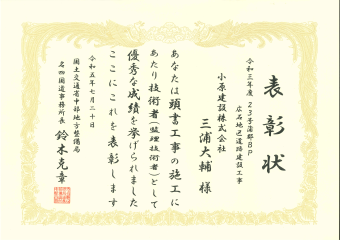 表彰状
令和三年度 23号蒲郡BP
広石地区道路建設工事
小原建設株式会社
三浦大輔 様
あなたは頭書工事の施工に
あたり技術者(監理技術者)として
優秀な成績を挙げられました
ここにこれを表彰します
令和五年七月二十日
国土交通省中部地方整備局
名四国道事務所長 鈴木克章